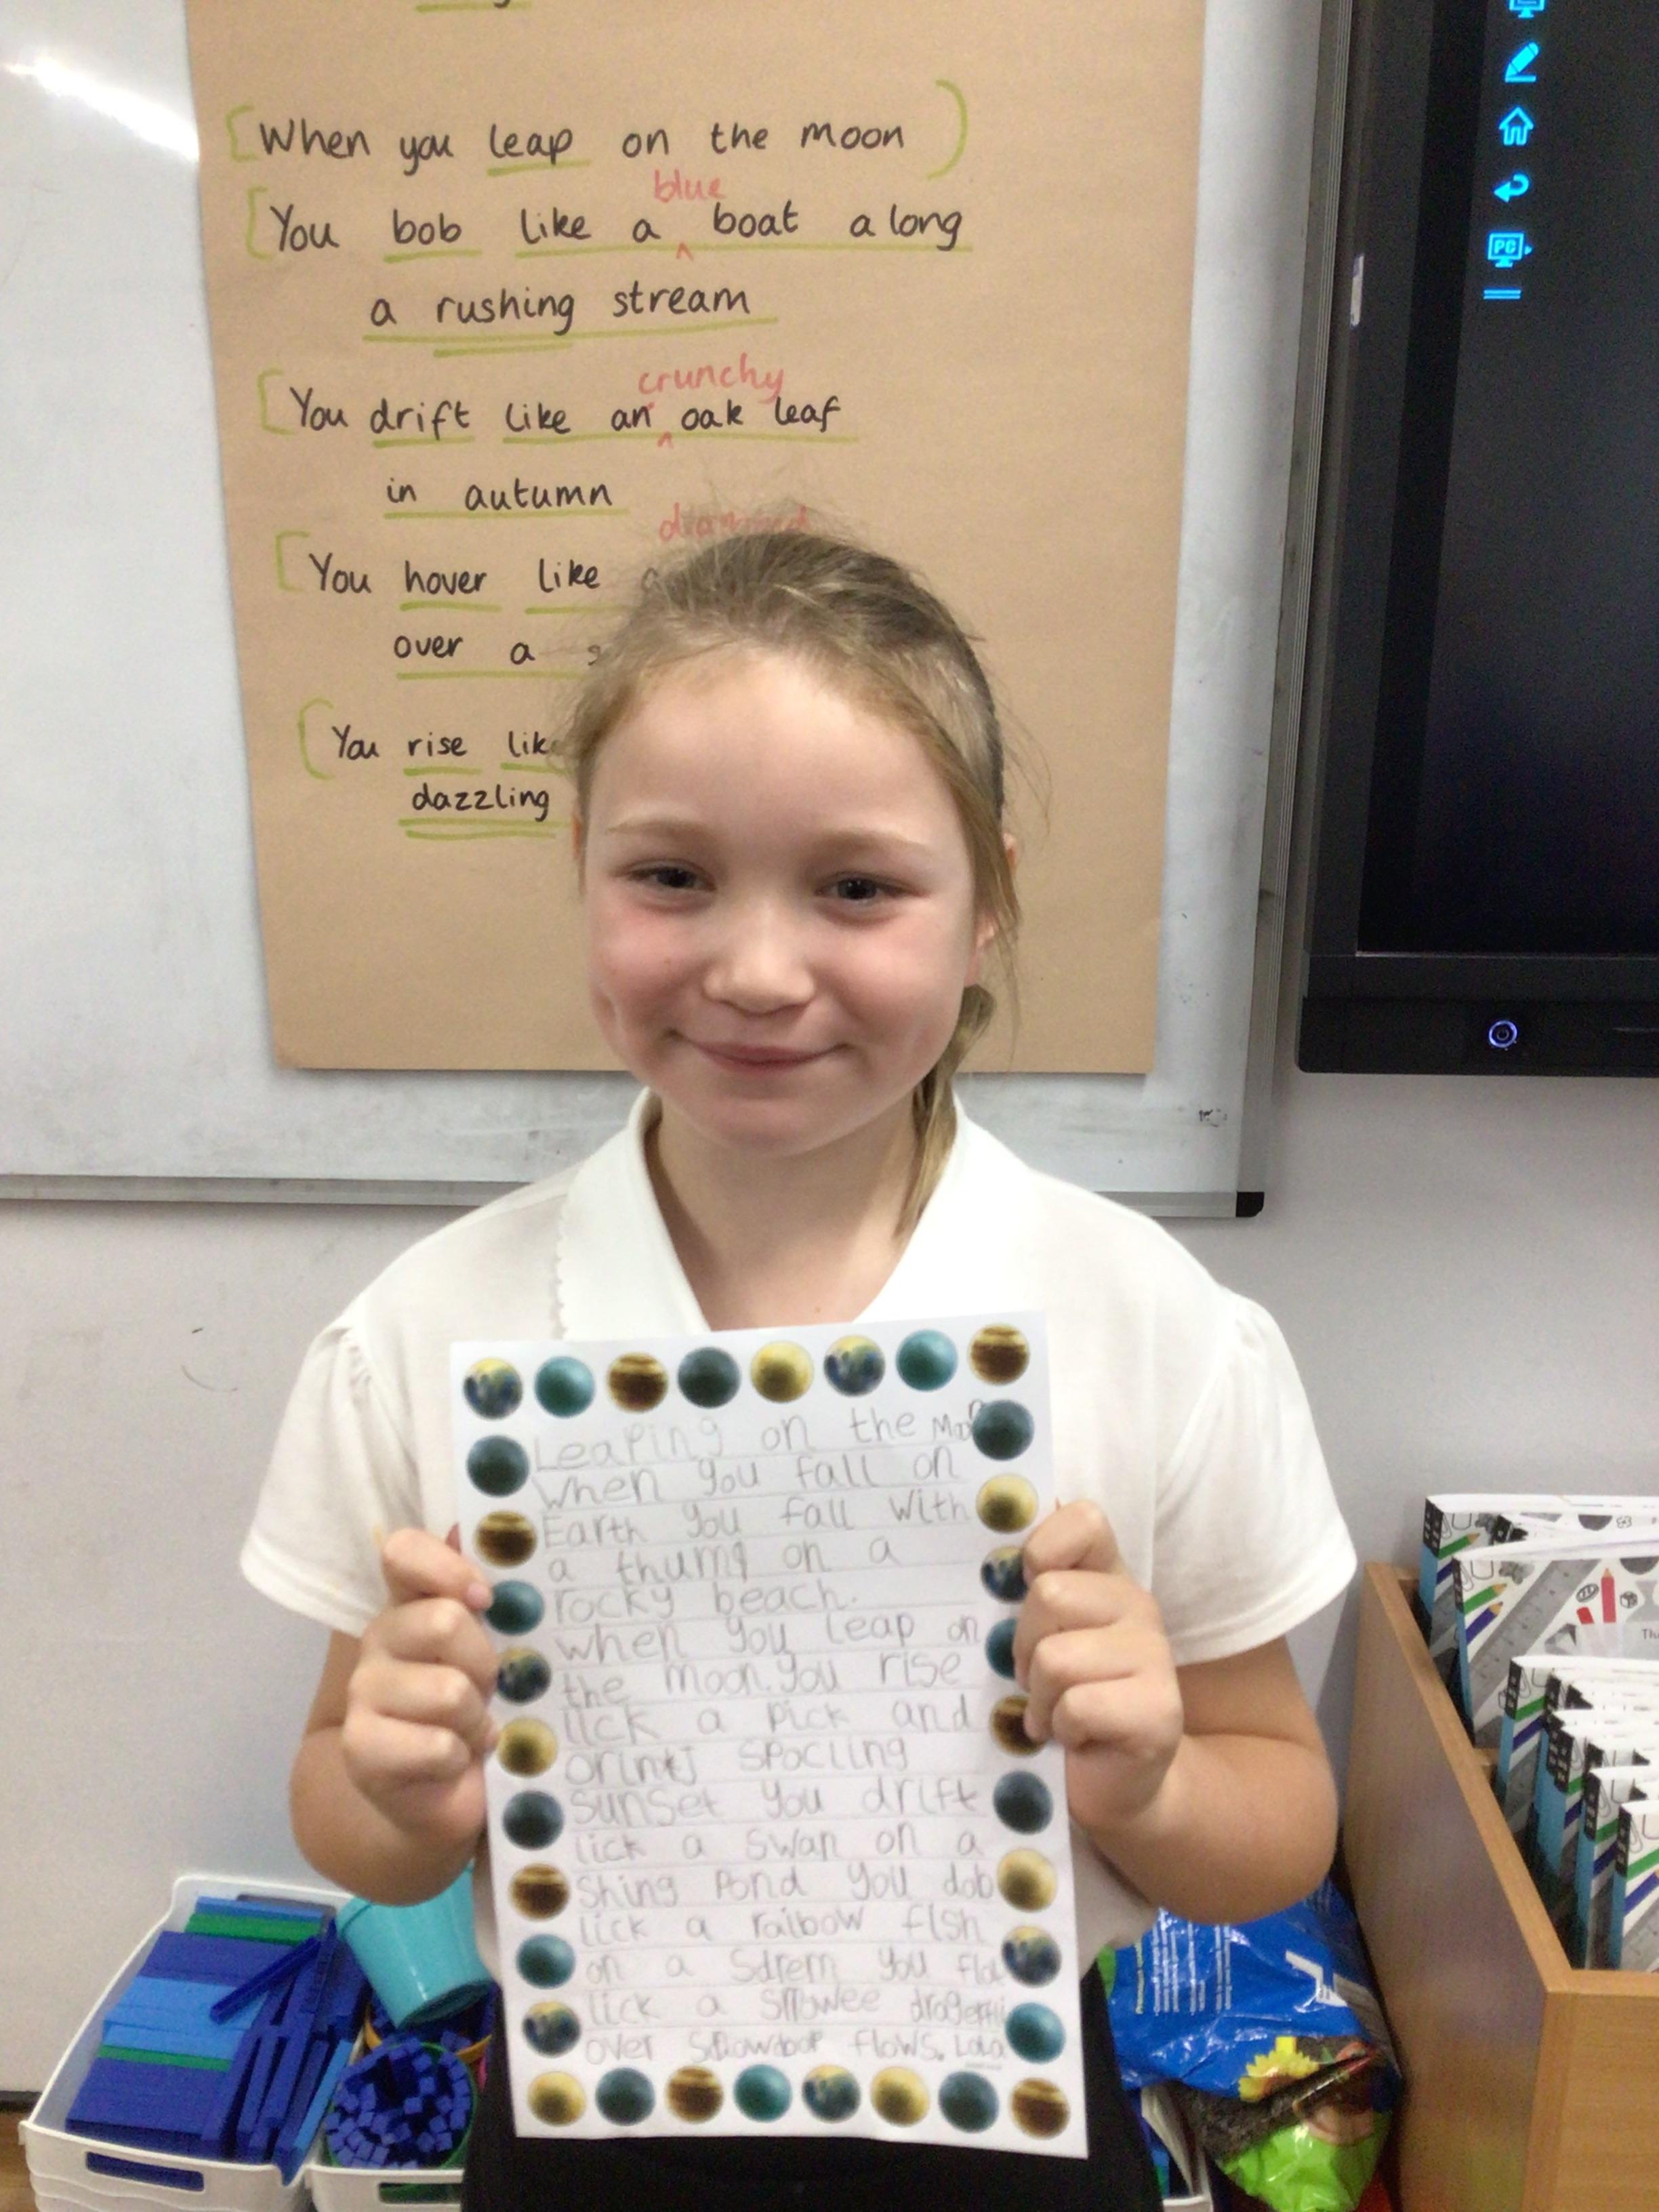 When you leap on the moon
blue
You bob like a boat along
a rushing stream
crunchy
You drift like an oak leaf
in autumn
You hover like
over a
You rise
dazzling
PC
Leaping on the Moon
when you fall on
Earth you fall with
a thump on a
rocky beach.
when you leap on
the moon. you rise
lick a pick and
spacling
sunset you drift
lick a swan on a
Shing Pond you dob
lick a raibow fish
on a Sdrem you
lick a
over flows. Lola